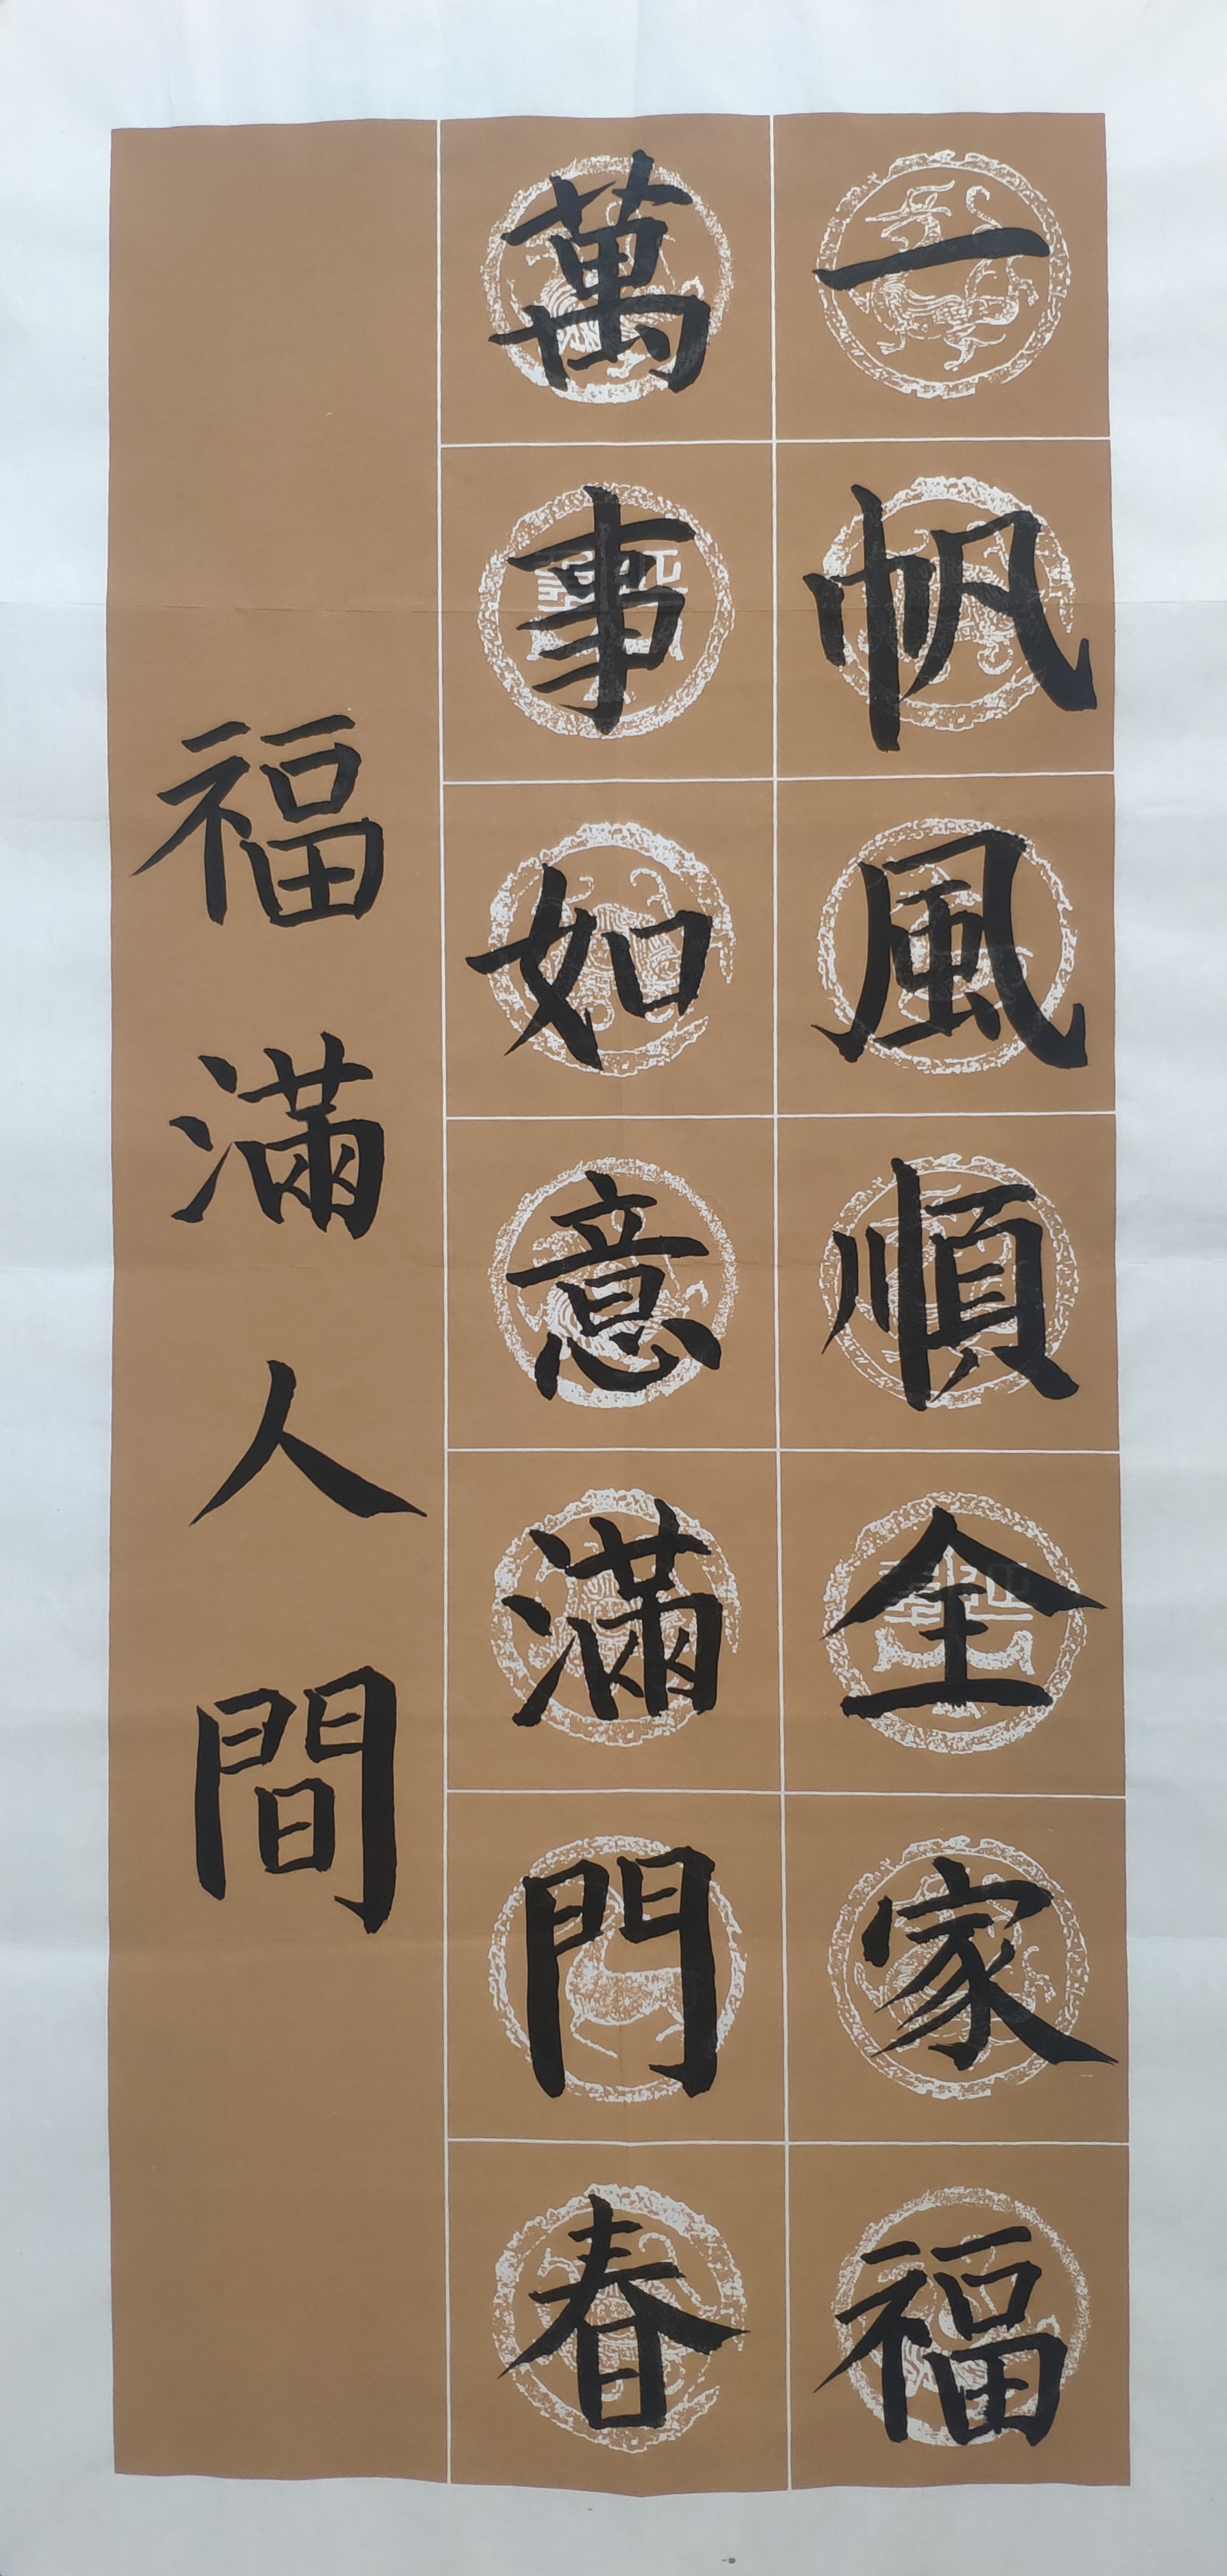 一帆風順全家福
萬事如意滿門春
福滿人間